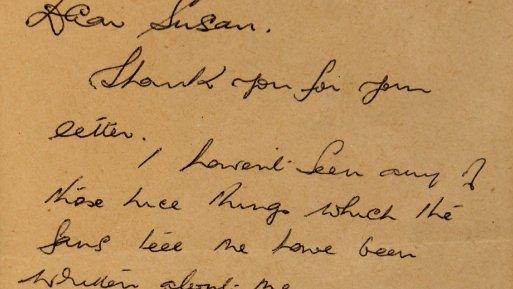 Dear Susan.
Thank you for your
letter.
I haven't seen any of
those nice things which the
fans tell me have been
written about me